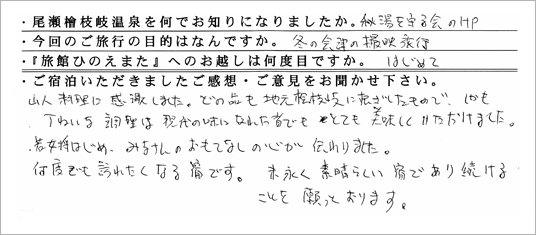 ・尾瀬檜枝岐温泉を何でお知りになりましたか。秘湯を守る会のHP
・今回のご旅行の目的はなんですか。冬の会津の撮映旅行
・『旅館ひのえまた』へのお越しは何度目ですか。はじめて
・ご宿泊いただきましたご感想・ご意見をお聞かせ下さい。
山人料理に感激しました。どの品も地元檜枝岐に根ざしたもので、しかも
ていねいな調理は現代の味になれた者でもとても美味しくいただけました。
若女将はじめ、みなさんのおもてなしの心が伝わりました。
何度でも訪れたくなる宿です。末永く素晴らしい宿であり続ける
ことを願っております。